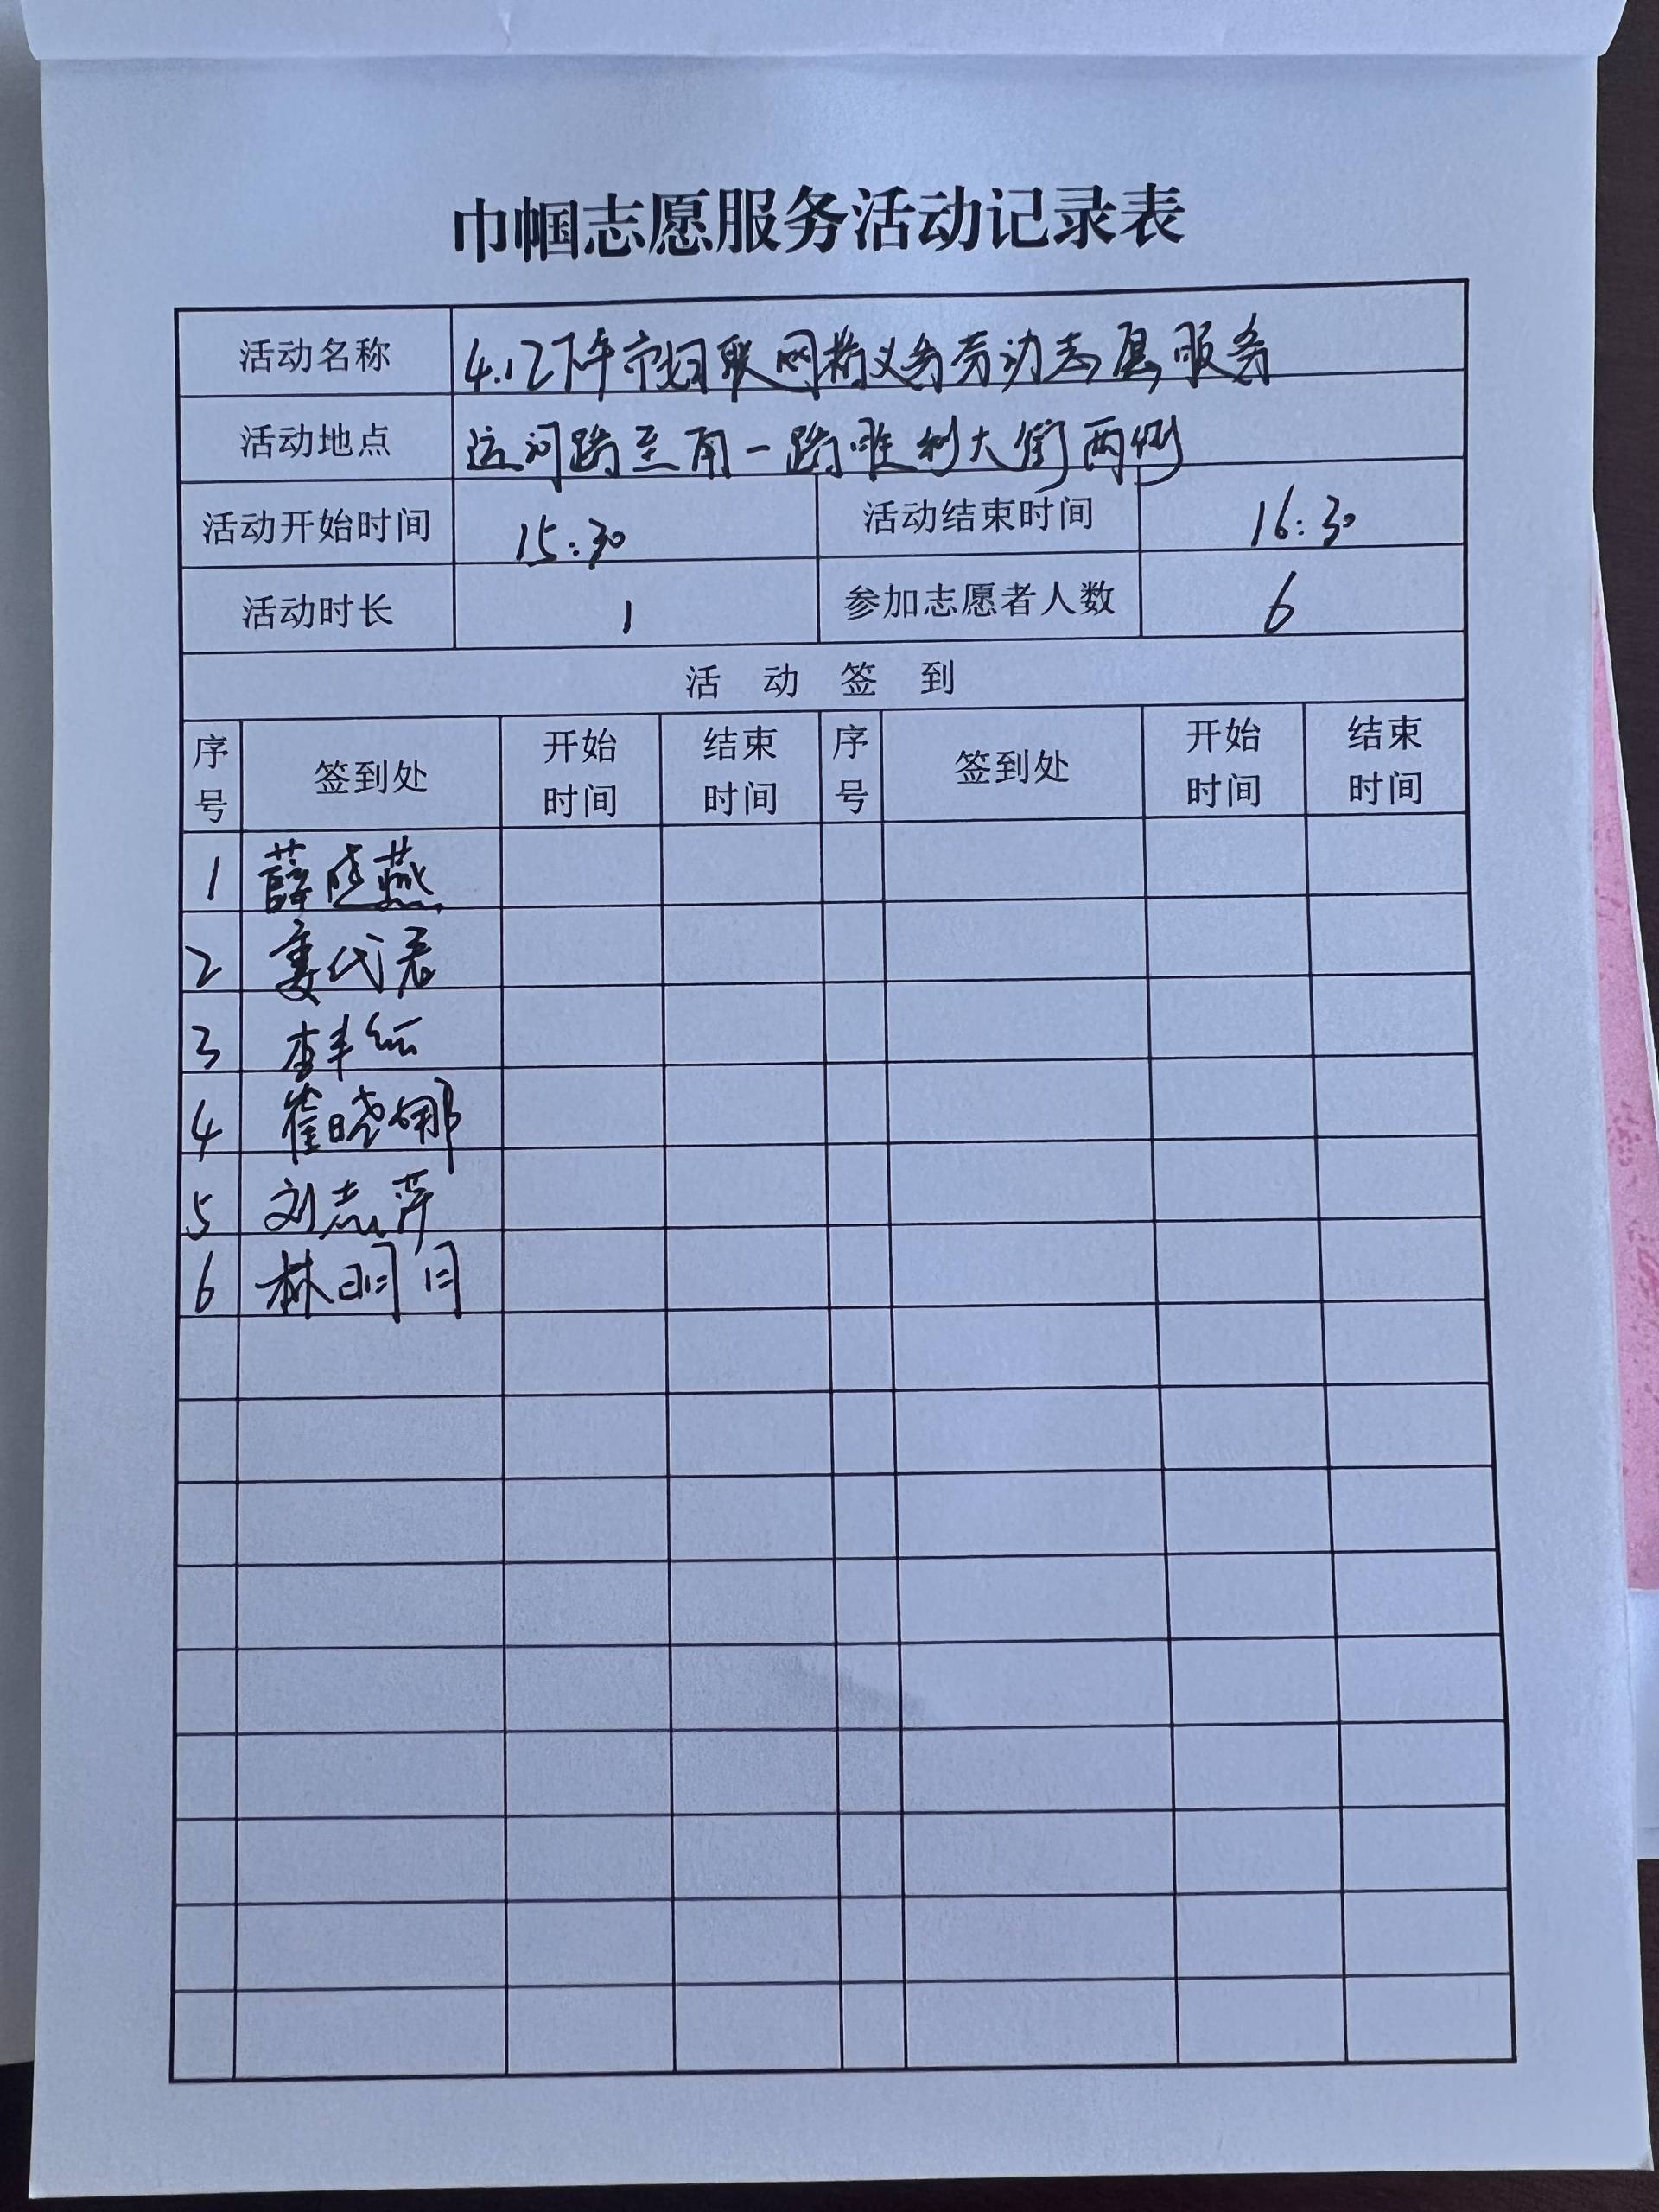 巾帼志愿服务活动记录表
活动名称 4.12下午市妇联网格义务劳动志愿服务
活动地点 运河路至南一路胜利大街两侧
活动开始时间 15:30 活动结束时间 16:30
活动时长 1 参加志愿者人数 6
活动签到
序号 签到处 开始时间 结束时间 序号 签到处 开始时间 结束时间
1 薛晓燕
2 姜代君
3
4 崔晓娜
5 刘志萍
6 林明月